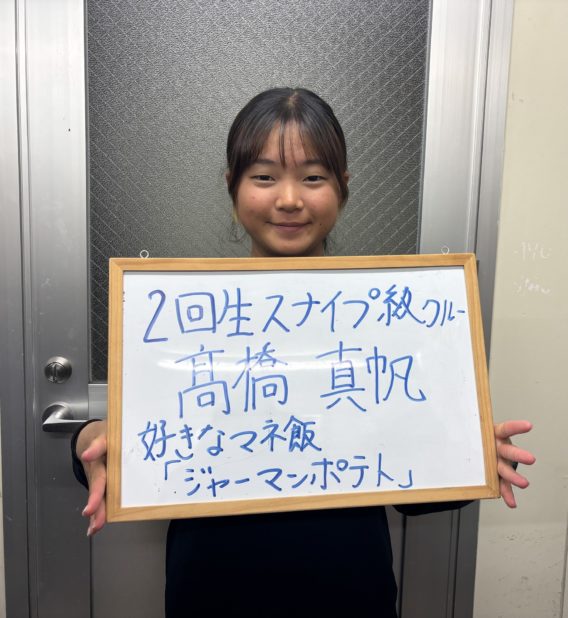 2回生スナイプ級クルー
髙橋 真帆
好きなマネ飯
「ジャーマンポテト」